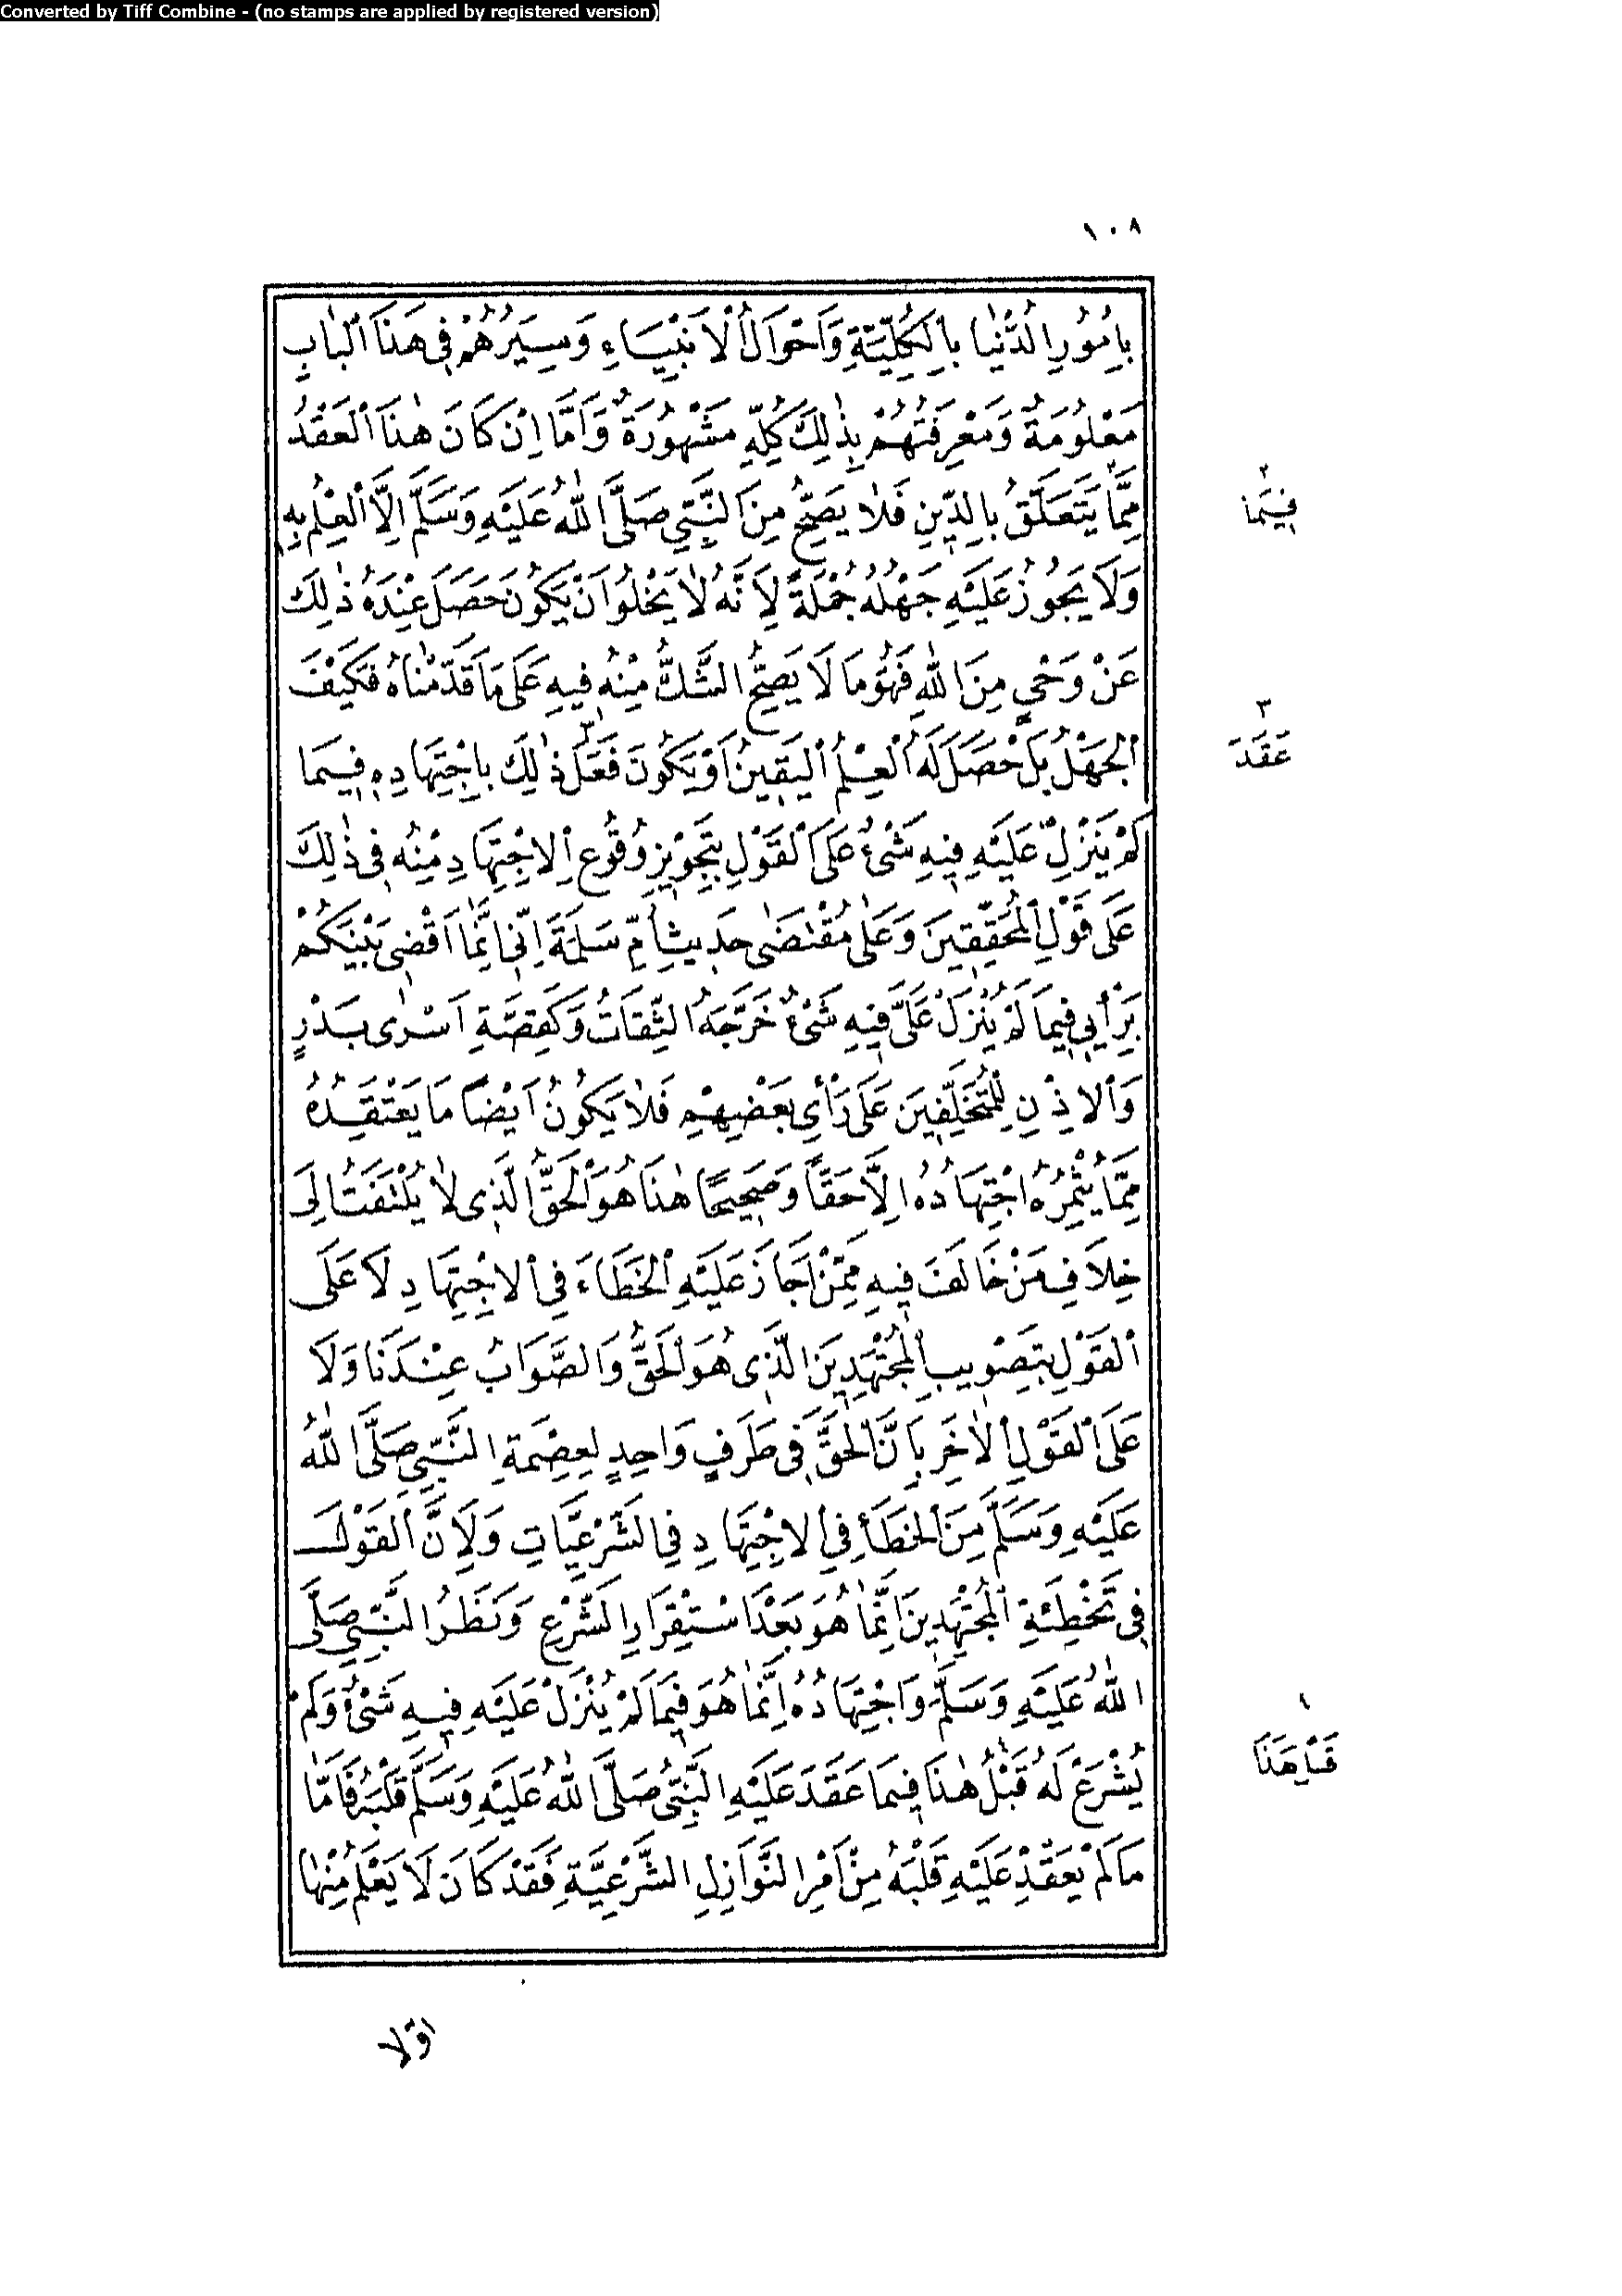 Converted by Tiff Combine - (no stamps are applied by registered version)
١٠٨
بِأُمُورِ الدُّنْيَا بِالْكُلِّيَّةِ وَأَحْوَالُ الْأَنْبِيَاءِ وَسِيَرُهُمْ فِي هَذَا الْبَابِ
مَعْلُومَةٌ وَمَعْرِفَتُهُمْ بِذٰلِكَ كُلِّهِ مَشْهُورَةٌ وَأَمَّا إِنْ كَانَ هٰذَا الْعَقْدُ
مِمَّا يَتَعَلَّقُ بِالدِّينِ فَلَا يَصِحُّ مِنَ النَّبِيِّ صَلَّى اللهُ عَلَيْهِ وَسَلَّمَ إِلَّا الْعِلْمُ بِهِ
٢
فِيمَا
وَلَا يَجُوزُ عَلَيْهِ جَهْلُهُ جُمْلَةً لِأَنَّهُ لَا يَخْلُو أَنْ يَكُونَ حَصَلَ عِنْدَهُ ذٰلِكَ
عَنْ وَحْيٍ مِنَ اللهِ فَهُوَ مَا لَا يَصِحُّ الشَّكُّ مِنْهُ فِيهِ عَلَى مَا قَدَّمْنَاهُ فَكَيْفَ
الْجَهْلُ بَلْ حَصَلَ لَهُ الْعِلْمُ الْيَقِينُ أَوْ يَكُونَ فَعَلَ ذٰلِكَ بِاجْتِهَادِهِ فِيمَا
٣
عَقَدَ
لَمْ يَنْزِلْ عَلَيْهِ فِيهِ شَيْءٌ عَلَى الْقَوْلِ بِتَجْوِيزِ وُقُوعِ الِاجْتِهَادِ مِنْهُ فِي ذٰلِكَ
عَلَى قَوْلِ الْمُحَقِّقِينَ وَعَلَى مُقْتَضَى حَدِيثِ أُمِّ سَلَمَةَ إِنِّي إِنَّمَا أَقْضِي بَيْنَكُمْ
بِرَأْيِي فِيمَا لَمْ يُنْزَلْ عَلَيَّ فِيهِ شَيْءٌ خَرَّجَهُ الثِّقَاتُ وَكَقِصَّةِ أَسْرٰى بَدْرٍ
وَالْإِذْنِ لِلْمُتَخَلِّفِينَ عَلَى رَأْيِ بَعْضِهِمْ فَلَا يَكُونُ أَيْضًا مَا يَعْتَقِدُهُ
مِمَّا يُثْمِرُهُ اجْتِهَادُهُ إِلَّا حَقًّا وَصَحِيحًا هٰذَا هُوَ الْحَقُّ الَّذِي لَا يُلْتَفَتُ إِلَى
خِلَافِ مَنْ خَالَفَ فِيهِ مِمَّنْ أَجَازَ عَلَيْهِ الْخَطَاءَ فِي الِاجْتِهَادِ لَا عَلَى
الْقَوْلِ بِتَصْوِيبِ الْمُجْتَهِدِينَ الَّذِي هُوَ الْحَقُّ وَالصَّوَابُ عِنْدَنَا وَلَا
عَلَى الْقَوْلِ الْآخَرِ بِأَنَّ الْحَقَّ فِي طَرَفٍ وَاحِدٍ لِعِصْمَةِ النَّبِيِّ صَلَّى اللهُ
عَلَيْهِ وَسَلَّمَ مِنَ الْخَطَأِ فِي الِاجْتِهَادِ فِي الشَّرْعِيَّاتِ وَلِأَنَّ الْقَوْلَ
فِي تَخْطِئَةِ الْمُجْتَهِدِينَ إِنَّمَا هُوَ بَعْدَ اسْتِقْرَارِ الشَّرْعِ وَنَظَرُ النَّبِيِّ صَلَّى
اللهُ عَلَيْهِ وَسَلَّمَ وَاجْتِهَادُهُ إِنَّمَا هُوَ فِيمَا لَمْ يُنْزَلْ عَلَيْهِ فِيهِ شَيْءٌ وَلَمْ
يُشْرَعْ لَهُ قَبْلُ هٰذَا فِيمَا عَقَدَ عَلَيْهِ النَّبِيُّ صَلَّى اللهُ عَلَيْهِ وَسَلَّمَ قَلْبَهُ فَأَمَّا
٤
قَبْلَ هَذَا
مَا لَمْ يَعْقِدْ عَلَيْهِ قَلْبَهُ مِنْ أَمْرِ النَّوَازِلِ الشَّرْعِيَّةِ فَقَدْ كَانَ لَا يَعْلَمُ مِنْهَا
اوّلا